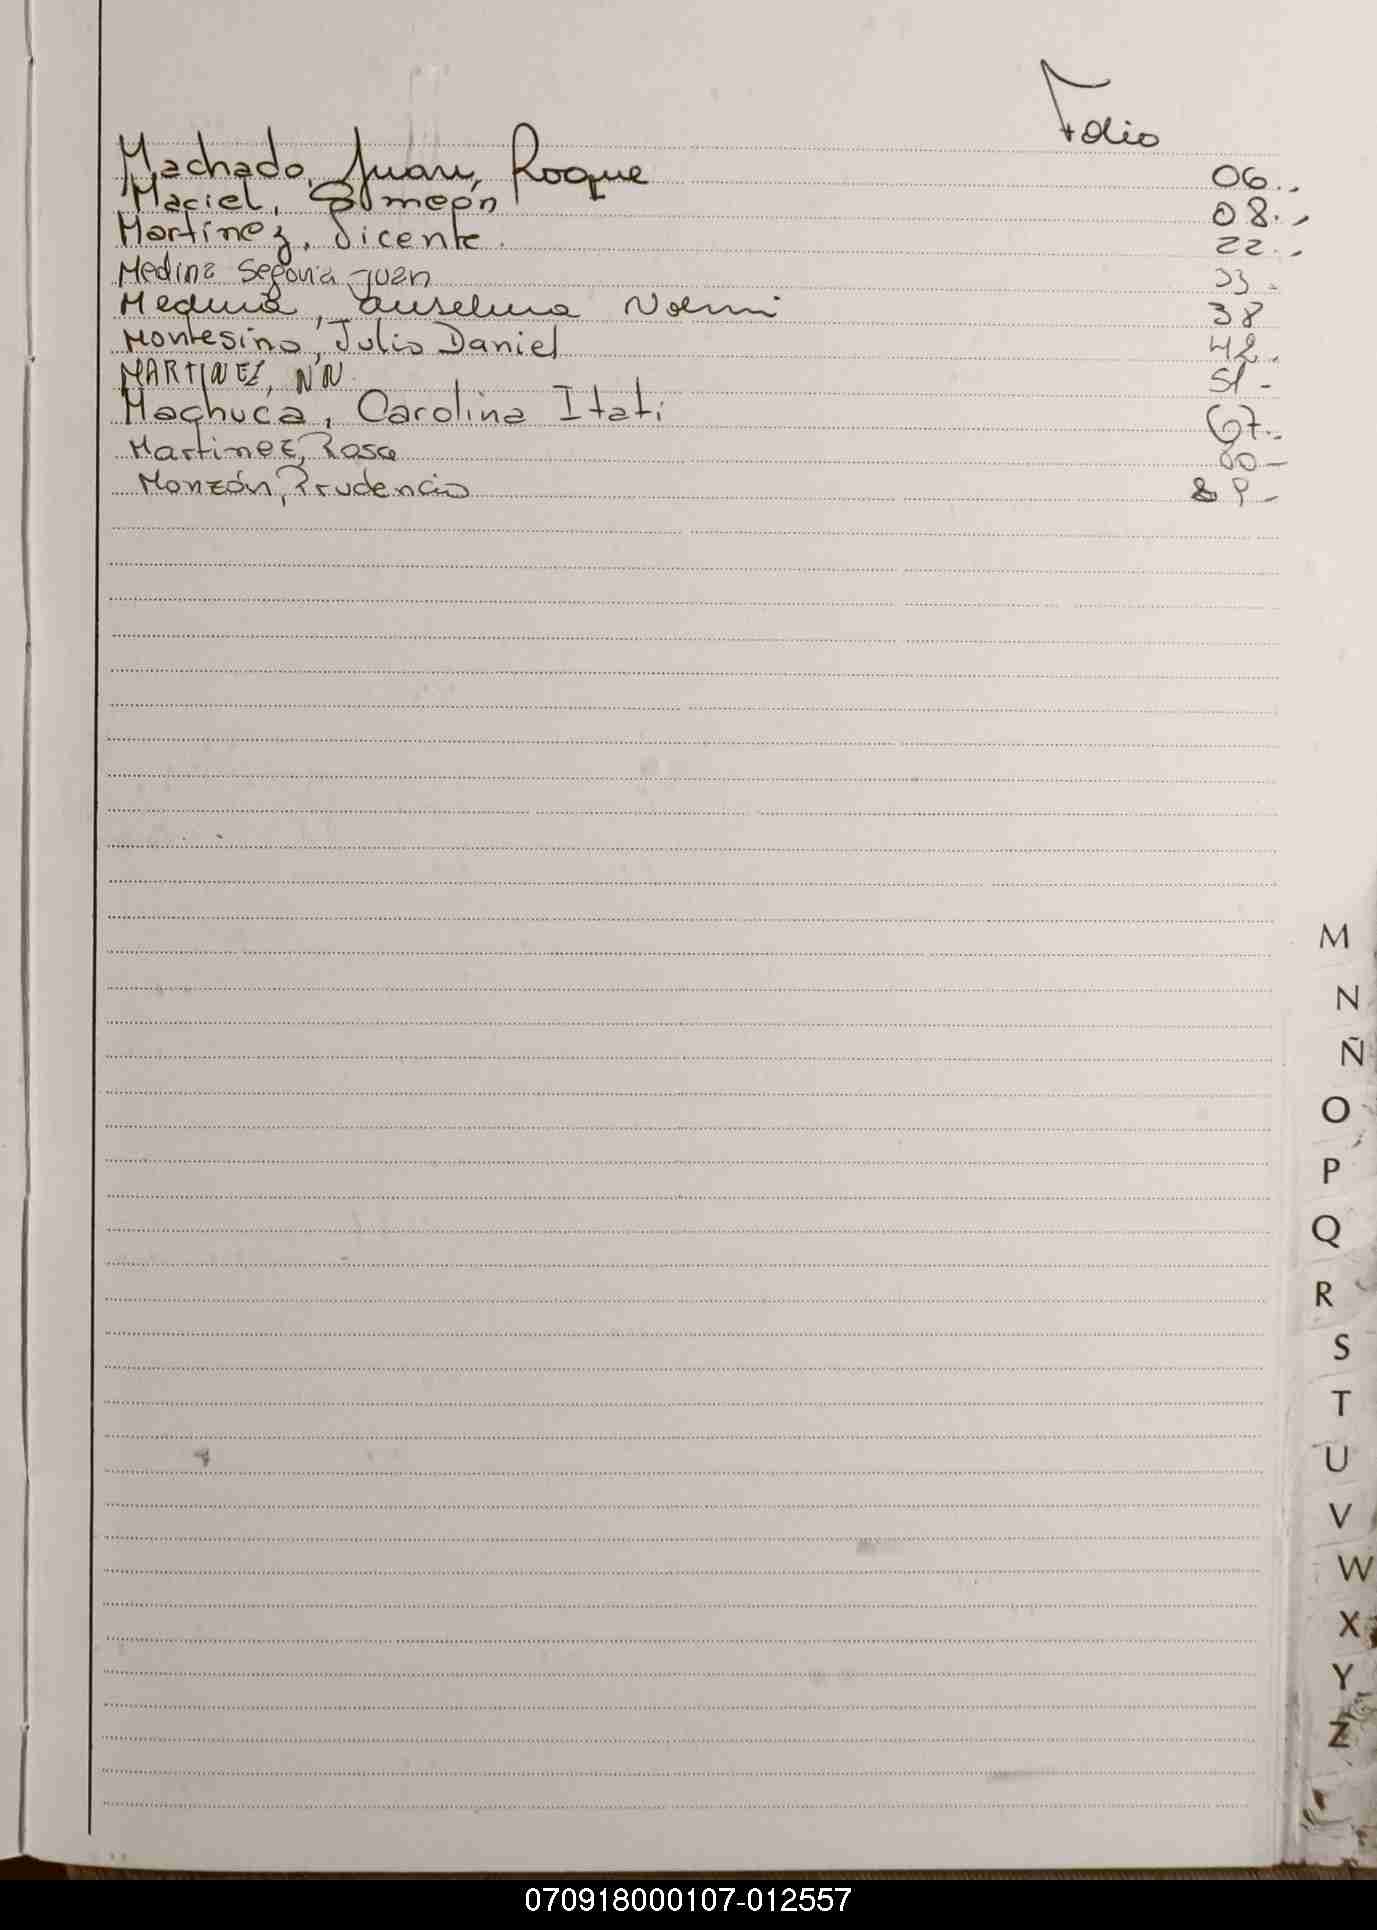 Folio
Machado, Juan, Roque 06..
Maciel, Simeón 08..
Martínez, Vicente. 22..
Medina Segovia Juan 33-
Medina, Anselma Noemi 38
Montesino, Julio Daniel 42.
MARTINEZ, NN. 51-
Machuca, Carolina Itati 67..
Martinez, Rosa 80-
Monzón, Prudencio
M
N
Ñ
O
P
Q
R
S
T
U
V
W
X
Y
Z
070918000107-012557